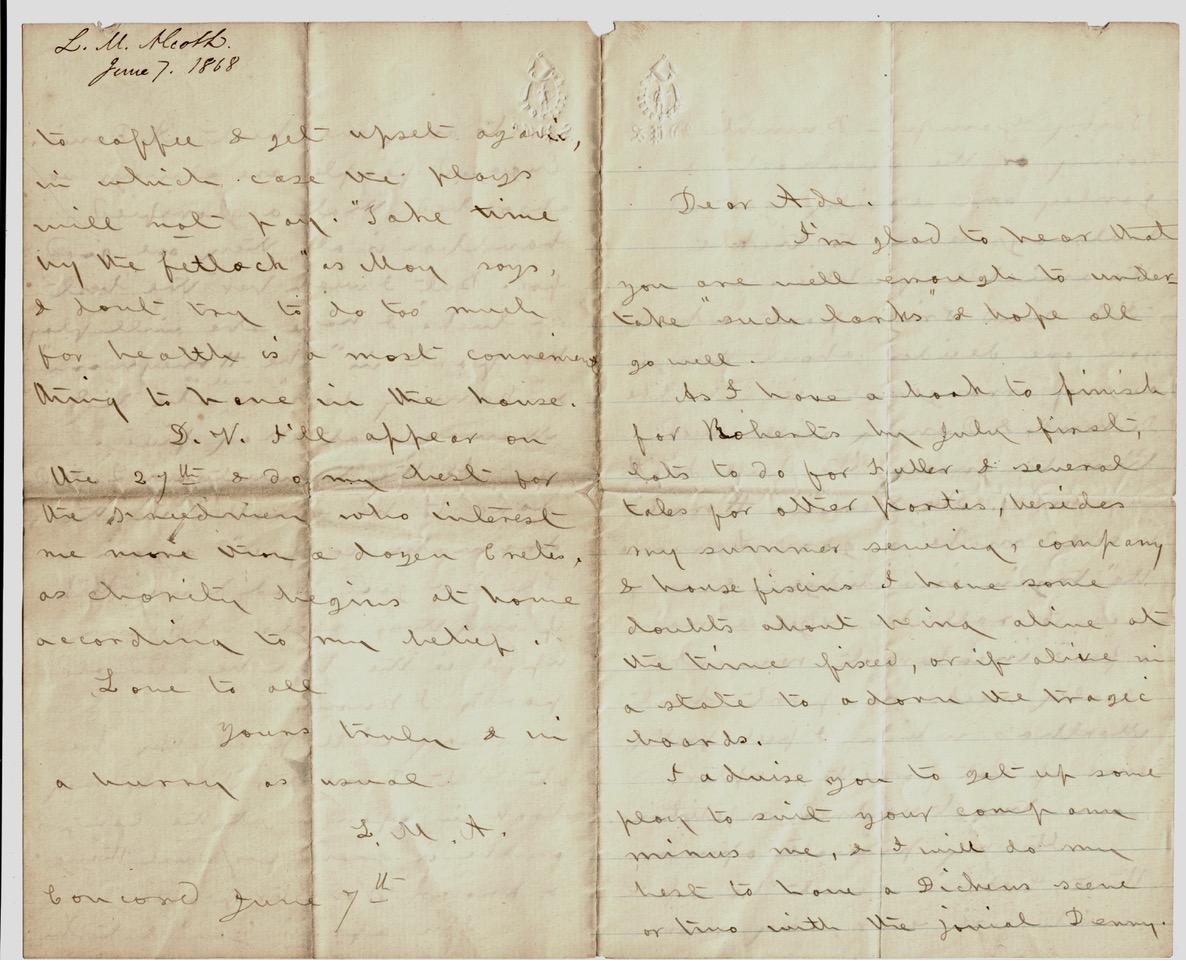 L. M. Alcott.
June 7. 1868
to coffee & get upset again,
in which case the plays
will not pay. "Take time
by the fetlock" as May says,
& dont try to do too much
for health is a most convenient
thing to have in the house.
D. V. I'll appear on
the 27th & do my best for
the Freedmen who interest
me more than a dozen Cretes,
as charity begins at home
according to my belief.
Love to all
yours truly & in
a hurry as usual
L. M. A.
Concord June 7th
Dear Ade.
I'm glad to hear that
you are well enough to under-
take "such larks" & hope all
go well.
As I have a book to finish
for Roberts by July first,
lots to do for Fuller & several
tales for other parties, besides
my summer sewing, company
& house fixins I have some
doubts about being alive at
the time fixed, or if alive in
a state to adorn the tragic
boards.
I advise you to get up some
play to suit your company
minus me, & I will do my
best to have a Dickens scene
or two with the jovial Denny.